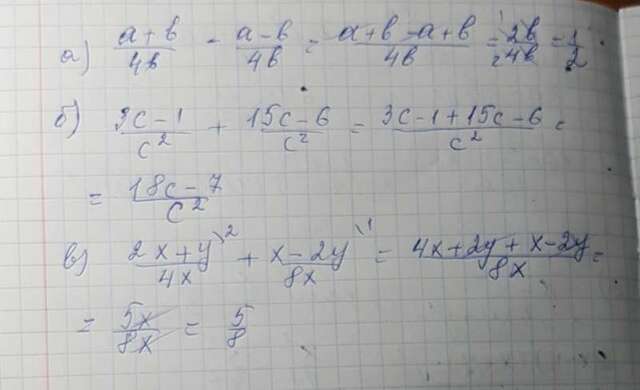 а) (a+b)/4b - (a-b)/4b = (a+b-a+b)/4b = 2b/4b = 1/2
б) (3c-1)/c² + (15c-6)/c² = (3c-1+15c-6)/c² =
= (18c-7)/c²
в) (2x+y)/4x \2 + (x-2y)/8x \1 = (4x+2y+x-2y)/8x =
= 5x/8x = 5/8